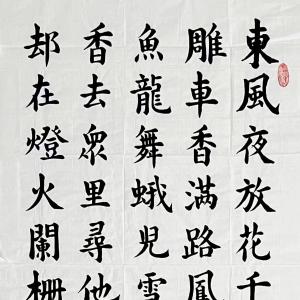 東風夜放花千
雕車香滿路鳳
魚龍舞蛾兒雪
香去衆里尋他
却在燈火闌柵